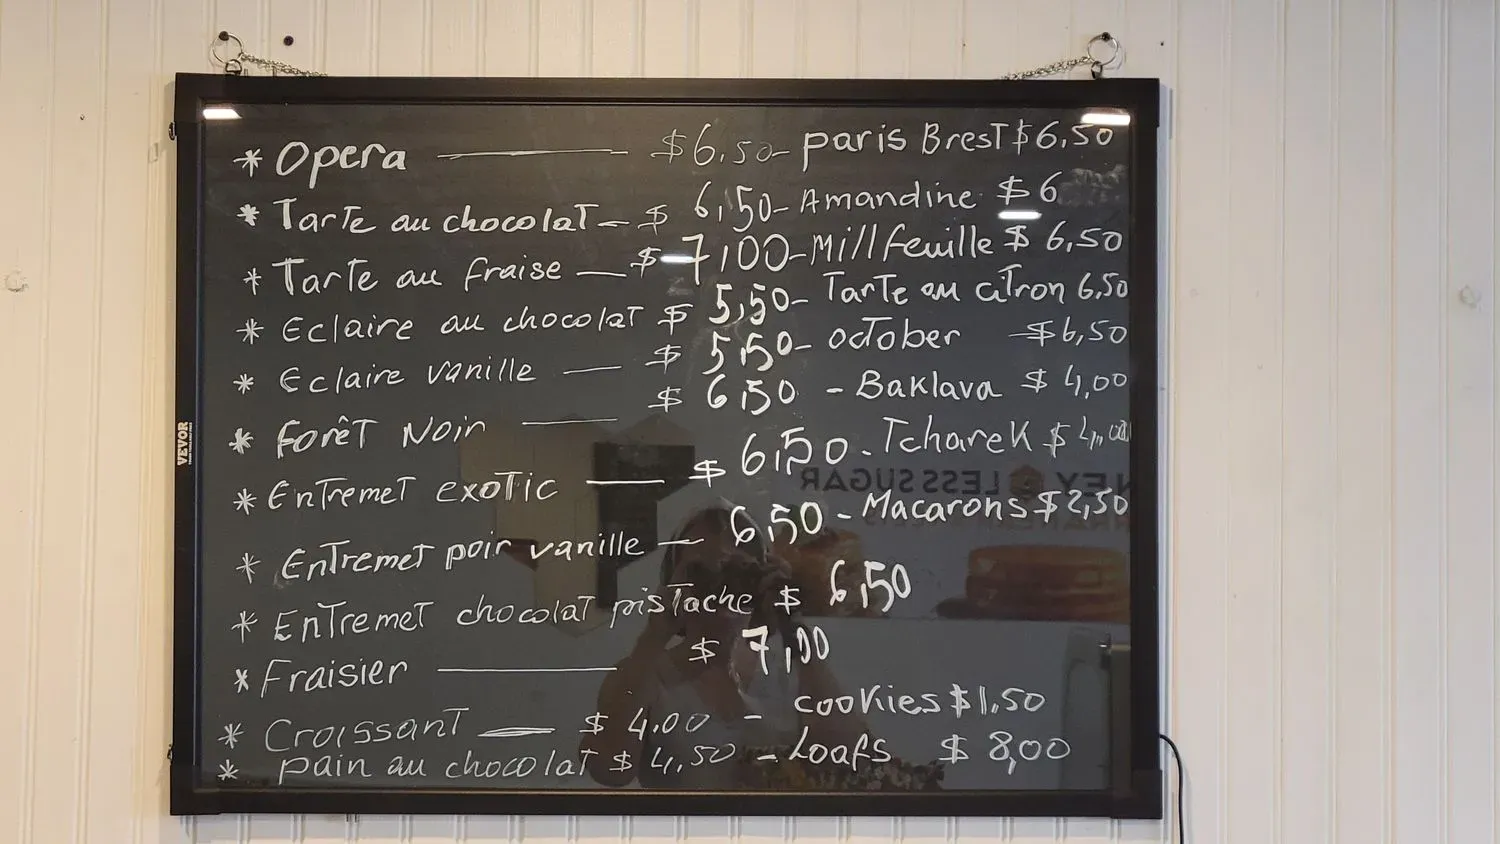 * Opera — $6.50 - paris BresT $6,50
* TarTe au chocolaT - $ 6,50 - Amandine $6
* TarTe au fraise — $ 7,00 - Millfeuille $ 6,50
* Eclaire au chocolaT $ 5,50 - TarTe au ciTron 6,50
* Eclaire vanille — $ 5,50 - ocTober - $6,50
* ForêT Noir — $ 6,50 - Baklava $ 4,00
* EnTremeT exoTic — $ 6,50 - Tcharek $ 4,00
* EnTremeT poir vanille — 6,50 - Macarons $2,50
* EnTremeT chocolaT pisTache $ 6,50
* Fraisier — $ 7,00
* CroissanT — $ 4.00 - cookies $1.50
* pain au chocolaT $ 4,50 - Loafs $ 8,00
VEVOR
LESS SUGAR